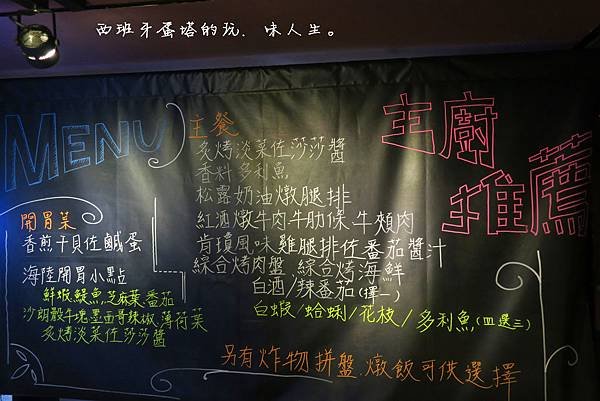 西班牙蛋塔的玩.味人生。
MENU
開胃菜
香煎干貝佐鹹蛋
海陸開胃小點
鮮蝦.鯷魚.芝麻葉.番茄
沙朗骰牛塊.墨西哥辣椒.薄荷葉
炙烤淡菜佐莎莎醬
主餐
炙烤淡菜佐莎莎醬
香料多利魚
松露奶油燉腿排
紅酒燉牛肉-牛肋條.牛頰肉
肯瓊風味雞腿排佐番茄醬汁
綜合烤肉盤.綜合烤海鮮
白酒/辣番茄(擇一)
白蝦/蛤蜊/花枝/多利魚(四選三)
主廚
推薦
另有炸物拼盤.燉飯可供選擇